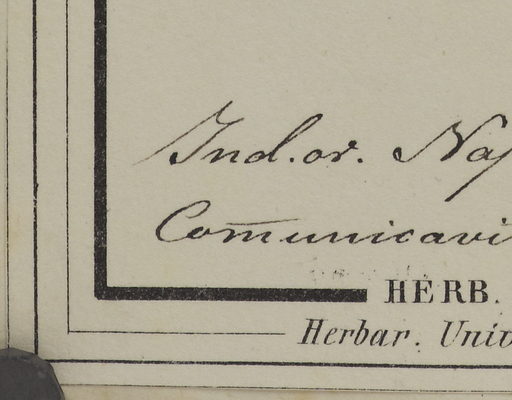 Ind. or. Na
Com̄unicavi
HERB.
Herbar. Univ